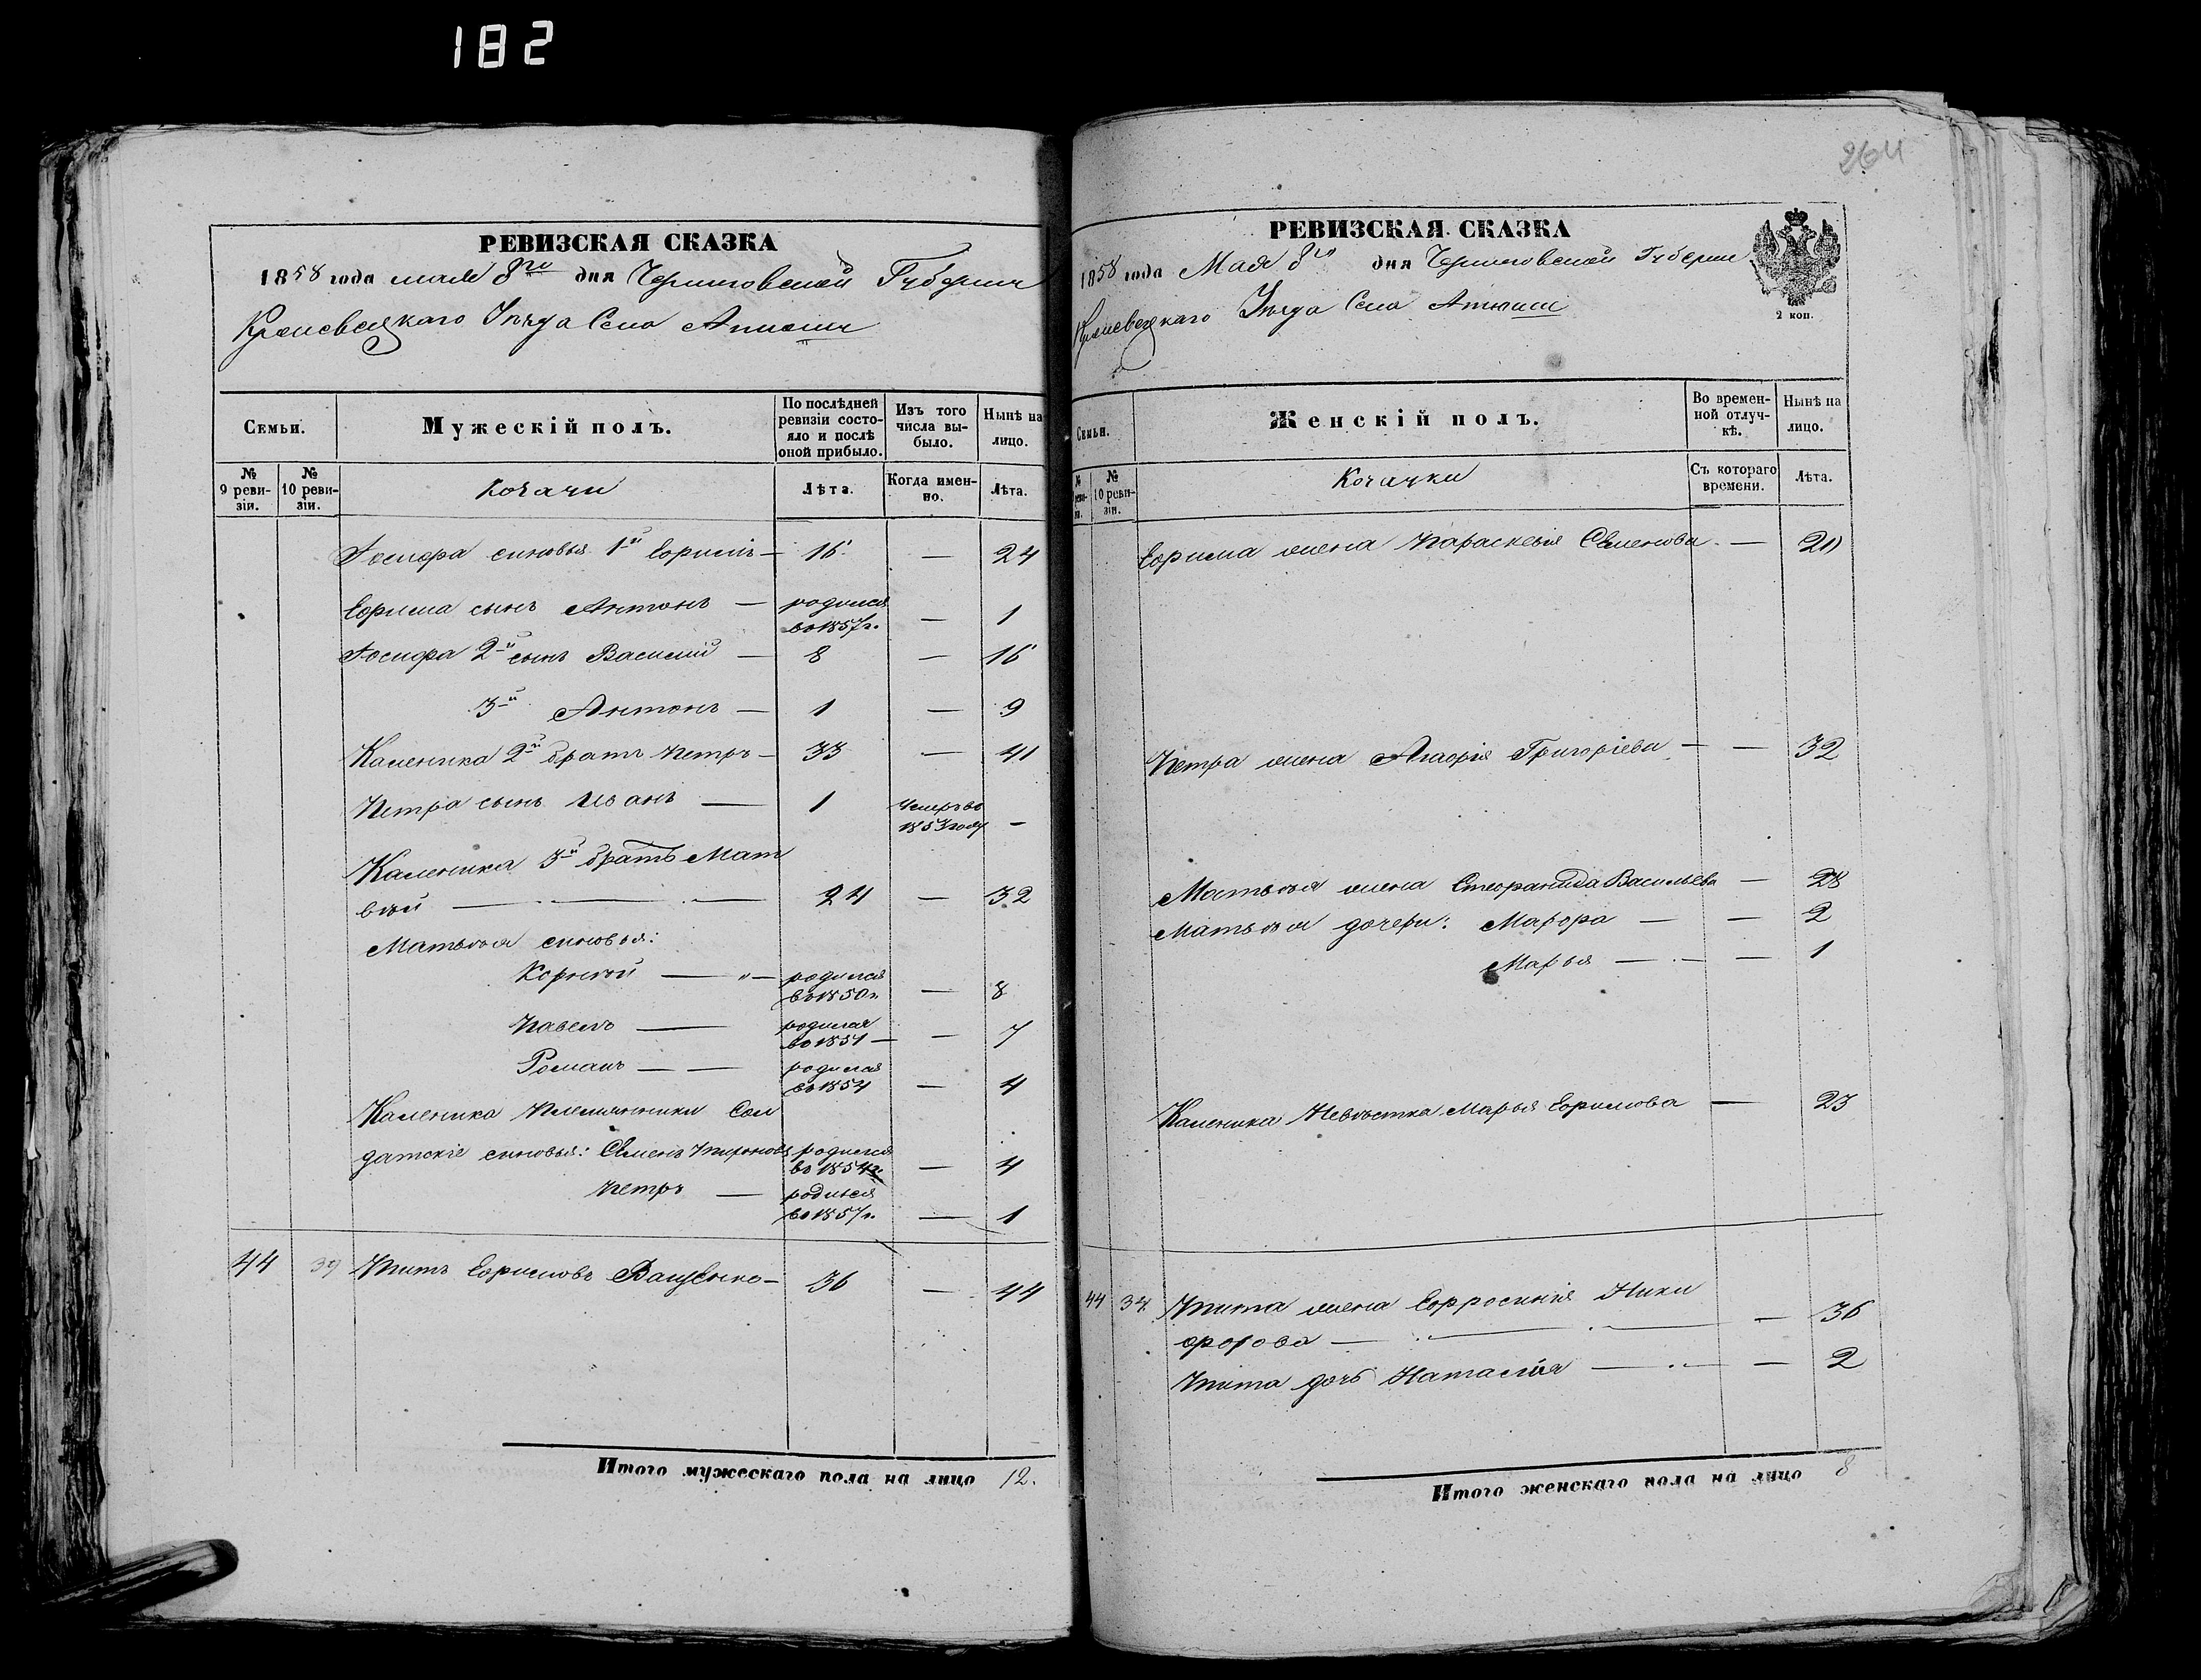 182
264
РЕВИЗСКАЯ СКАЗКА
1858 года мая 8го дня Черниговской Губернии
Кролевецкаго Уѣзда Села Атюши
Семьи.
Мужескій полъ.
По послѣдней ревизіи состояло и послѣ оной прибыло.
Изъ того числа выбыло.
Нынѣ на лицо.
№ 9 ревизіи.
№ 10 ревизіи.
Козачи
Лѣта.
Когда именно.
Лѣта.
Іосифа сыновья 1й Ефимъ — 16 — 24
Ефима сынъ Антонъ — родился въ 1857г. — 1
Іосифа 2й сынъ Василій — 8 — 16
3й Антонъ — 1 — 9
Каленика 2й братъ Петръ — 33 — 41
Петра сынъ Иванъ — 1 Умеръ въ 1853 году —
Каленика 3й братъ Мат
вѣй — 24 — 32
Матвѣя сыновья:
Корнѣй — родился въ 1850г. — 8
Павелъ — родился въ 1851 — 7
Романъ — родился въ 1854 — 4
Каленика племянники Сол
датскіе сыновья: Семенъ родился въ 1854г. — 4
Петръ — родился въ 1857г. — 1
44 39 Титъ Ефимовъ Ващенко — 36 — 44
Итого мужескаго пола на лицо 12.
РЕВИЗСКАЯ СКАЗКА
1858 года Мая 8го дня Черниговской Губернии
Кролевецкаго Уѣзда Села Атюши
2 коп.
Семьи.
Женскій полъ.
Во временной отлучкѣ.
Нынѣ на лицо.
№ 10 ревизіи.
Козачки
Съ котораго времени.
Лѣта.
Ефима жена Параскевія Семенова — 20
Петра жена Агафія Григоріева — — 32
Матвѣя жена Стефанида Васильева — 28
Матвѣя дочери: Мавра — — 2
Марья — — 1
Каленика Невѣстка Марья Ефимова — 23
44 39 Тита жена Ефросинія Ники
форова — — 36
Тита дочь Наталія — — 2
Итого женскаго пола на лицо 8